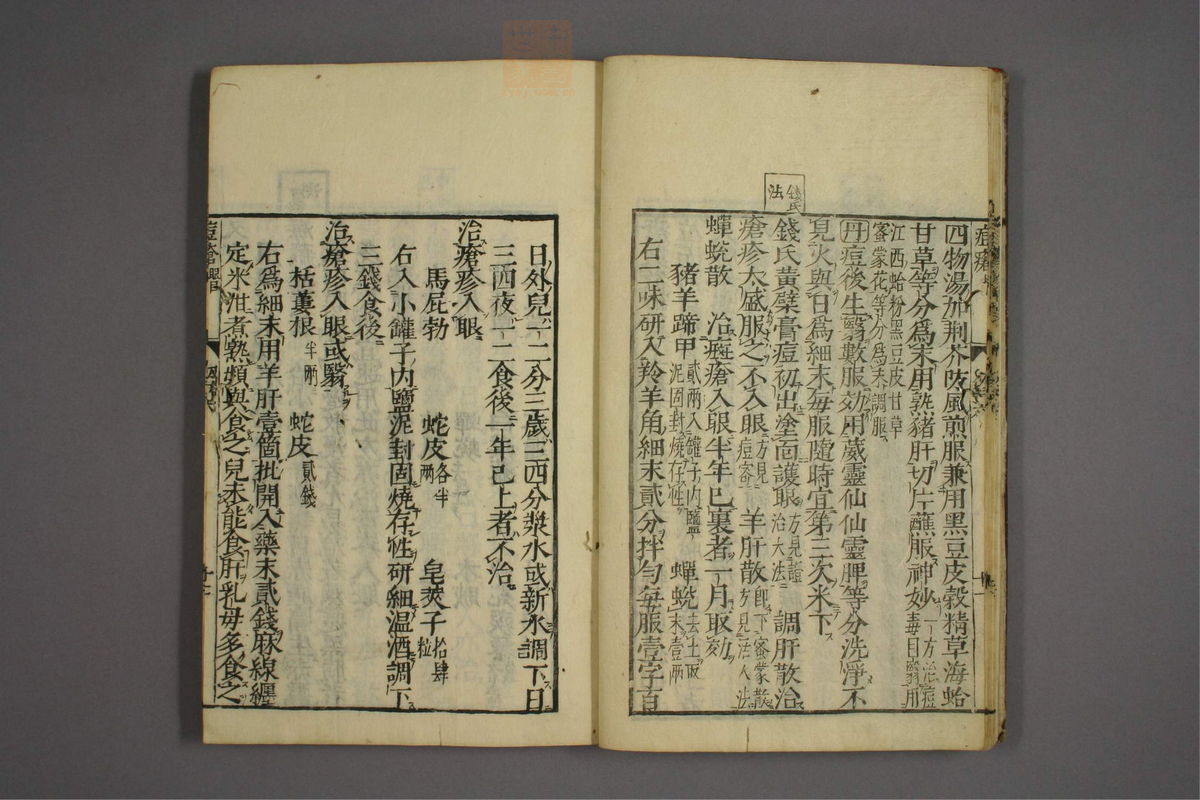 四物湯加荆芥防風煎服兼用黒豆皮穀精草海蛤
甘草等分爲末用熟猪肝切片蘸服神妙一方治痘毒目翳用
江西蛤粉黒豆皮甘草
蜜蒙花等分爲末調服
丹痘後生翳數服効用葳靈仙仙靈脾等分洗淨不
見火與日爲細末每服隨時宜第三次米下
錢氏
法
錢氏黄蘗膏痘初出塗面護眼方見證治大法 調肝散治
瘡疹太盛服之不入眼方見痘齋 羊肝散即下蜜蒙散方見活人法
蟬蛻散 治癍瘡入眼半年已裏者一月取効
豬羊蹄甲貳兩入罐子内鹽泥固封燒存性 蟬蛻去土取末壹兩
右二味研入羚羊角細末貳分拌匀每服壹字百
日外兒一二分三歲三四分漿水或新水調下日
三四夜一二食後一年已上者不治
治瘡疹入眼
馬屁勃 蛇皮各半兩 皂莢子拾肆粒
右入小罐子内鹽泥封固燒存性研細温酒調下
三錢食後
治瘡疹入眼或翳
栝蔞根半兩 蛇皮貳錢
右爲細末用羊肝壹箇批開入藥末貳錢麻線纒
定米泔煮熟頻與食之兒未能食肝乳母多食之